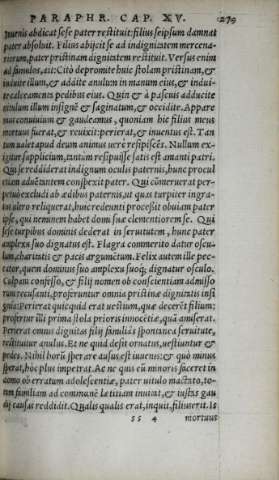 PARAPHR. CAP. XV. 279
Iuuenis abdicat sese pater restituit: filius seipsum damnat
pater absoluit. Filius abijcit se ad indignitatem mercena-
riorum, pater pristinam dignitatem restituit. Versus enim
ad famulos, ait: Citò depromite huic stolam pristinam, &
induite illum, & addite anulum in manum eius, & indui-
te calceamenta pedibus eius. Quin & à pascuis adducite
uitulum illum insignē & saginatum, & occidite. Appare
mus conuiuium & gaudeamus, quoniam hic filius meus
mortuus fuerat, & reuixit: perierat, & inuentus est. Tan
tum ualet apud deum animus uerè resipiscēs. Nullum ex-
igitur supplicium, tantum resipuisse satis est amanti patri.
Qui se reddiderat indignum oculis paternis, hunc procul
etiam aduenientem conspexit pater. Qui cōmeruerat per-
petuò excludi ab ædibus paternis, ut quas turpiter ingra-
tus ultro reliquerat, hunc redeunti processit obuiam pater
ipse, qui neminem habet domi suæ clementiorem se. Qui
sese turpibus dominis dederat in seruitutem, hunc pater
amplexu suo dignatus est. Flagrā commerito datur oscu-
lum, charitatis & pacis argumētum. Felix autem ille pec-
cator, quem dominus suo amplexu suoq; dignatur osculo.
Culpam confesso, & filij nomen ob conscientiam admisso
rum recusanti, proferuntur omnia pristinæ dignitatis insi
gnia: Perierat quicquid erat uestium, quæ decerēt filium:
profertur illi prima stola prioris innocētiæ, quā amiserat.
Perierat omnis dignitas filij familiâs spontanea seruitute,
restituitur anulus. Et ne quid desit ornatus, uestiuntur &
pedes. Nihil horū sperare ausus est iuuenis: & quò minus
sperat, hòc plus impetrat. Ac ne quis eū minoris faceret in
domo ob erratum adolescentiæ, pater uitulo mactato, to-
tam familiam ad communē lætitiam inuitat, & iustas gau
dij causas reddidit. Qualis qualis erat, inquit, filius erat. Is
ss 4 mortuus